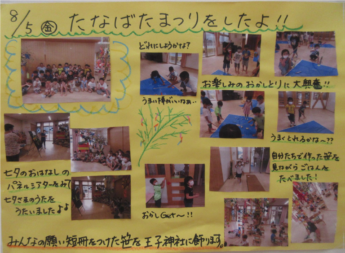 8/5 金 たなばたまつりをしたよ!!
どれにしようかな?
お楽しみのおかしとりに大興奮!!
うまくとれるかな〜??
七夕のおはなしの
パネルシアターをみて
七夕さまのうたを
うたいましたよ♪
おかしGet〜!!
自分たちで作った笹を
見ながらごはんを
たべました!
みんなの願い短冊をつけた笹を王子神社に飾ります。